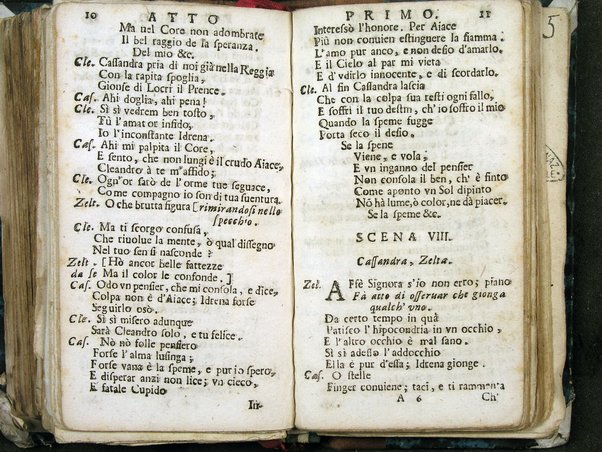 10 ATTO
Ma nel Core non adombrate
Il bel raggio de la speranza.
Del mio &c.
Cle. Cassandra pria di noi già nella Reggia
Con la rapita spoglia,
Gionse di Locri il Prence.
Cas. Ahi doglia, ahi pena!
Cle. Sì sì vedrem ben tosto,
Tù l'amator infido,
Io l'inconstante Idrena.
Cas. Ahi mi palpita il Core,
E sento, che non lungi è il crudo Aiace,
Cleandro à te m'affido;
Cle. Ogn'or sarò de l'orme tue seguace,
Come compagno io son di tua suentura.
Zelt. O che brutta figura [rimirandosi nello
specchio.
Cle. Ma ti scorgo confusa,
Che riuolue la mente, ò qual dissegno
Nel tuo sen si nasconde?
Zelt. [Hò ancor belle fattezze
da se Ma il color le confonde.]
Cas. Odo vn pensier, che mi consola, e dice,
Colpa non è d'Aiace; Idrena forse
Seguirlo osò.
Cle. Sì sì misero adunque
Sarà Cleandro solo, e tu felice.
Cas. Nò nò folle pensiero
Forse l'alma lusinga;
Forse vana è la speme, e pur io spero,
E disperar anzi non lice; vn cieco,
E fatale Cupido
In-
PRIMO. 11
Interessò l'honore. Per Aiace
Più non conuien estinguere la fiamma.
L'amo pur anco, e non desio d'amarlo,
E il Cielo al par mi vieta
E d'vdirlo innocente, e di scordarlo.
Cle. Al fin Cassandra lascia
Che con la colpa sua testi ogni fallo,
E soffri il tuo destin, ch'io soffro il mio
Quando la speme fugge
Porta seco il desio.
Se la spene
Viene, e vola;
E vn inganno del pensier
Non consola il ben, ch'è finto
Come aponto vn Sol dipinto
Nō hà lume, ò color, ne dà piacer.
Se la speme &c.
SCENA VIII.
Cassandra, Zelta.
Zel. AFsè Signora s'io non erro; piano
Fà atto di osseruar che gionga
qualch'vno.
Da certo tempo in quà
Patisco l'hipocondria in vn occhio,
E l'altro occhio è mal sano.
Sì sì adesso l'addocchio
Ella è pur d'essa; Idrena gionge.
Cas. O stelle
Finger conuiene; taci, e ti rammenta
A 6 Ch'
5